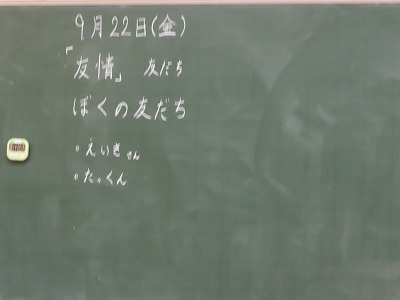 9月22日(金)
「友情」 友だち
ぼくの友だち
。えいきさん
。たっくん